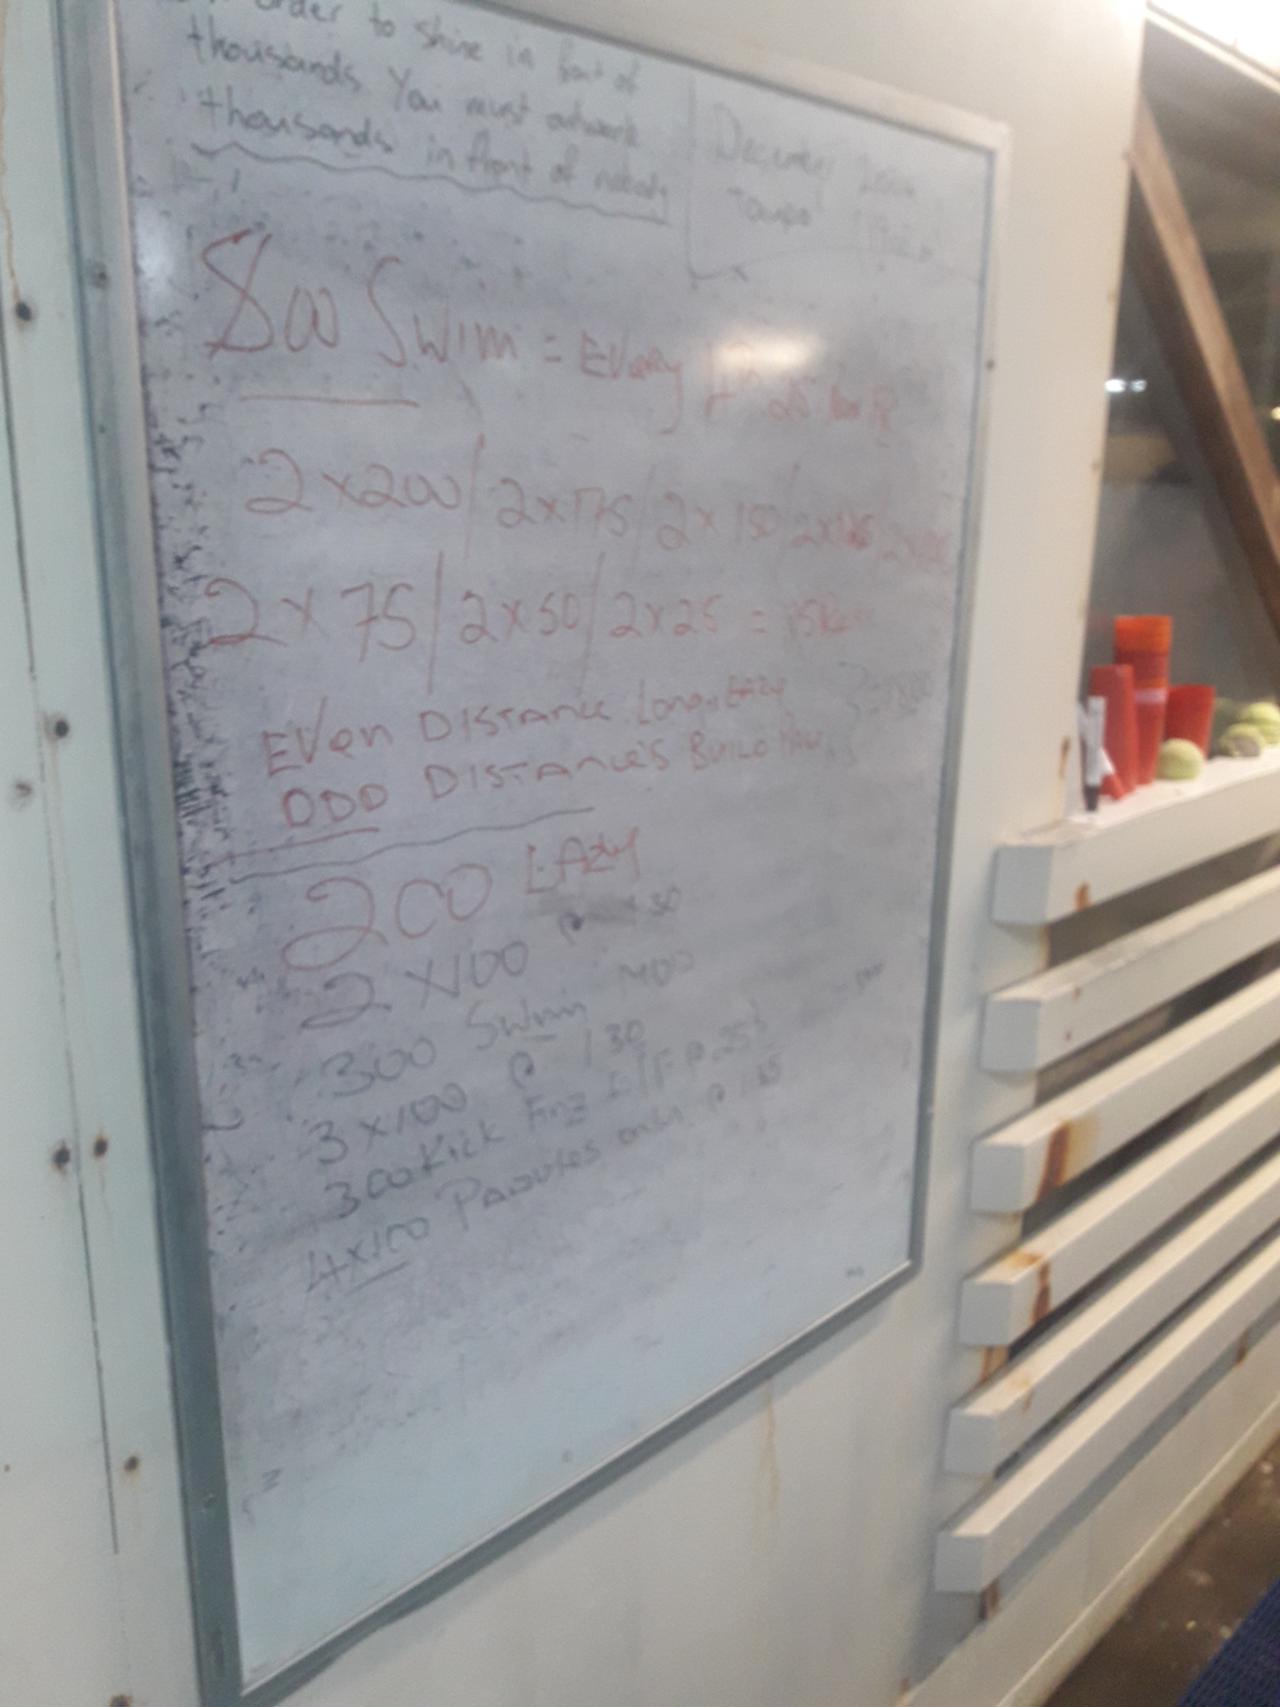 order to shine in front of
thousands You must outwork
thousands in front of nobody
Tempo
800 Swim = EVERY 4th 25
2x200/2x175/2x150/2x125/2x100
2x75/2x50/2x25 = 15
EVEN DISTANCE Long, EAZY
ODD DISTANCE'S BUILD
200 EAZY
2x100 30
300 Swim MOD
3x100 @ 130
300 Kick
4x100 PADDLES only @